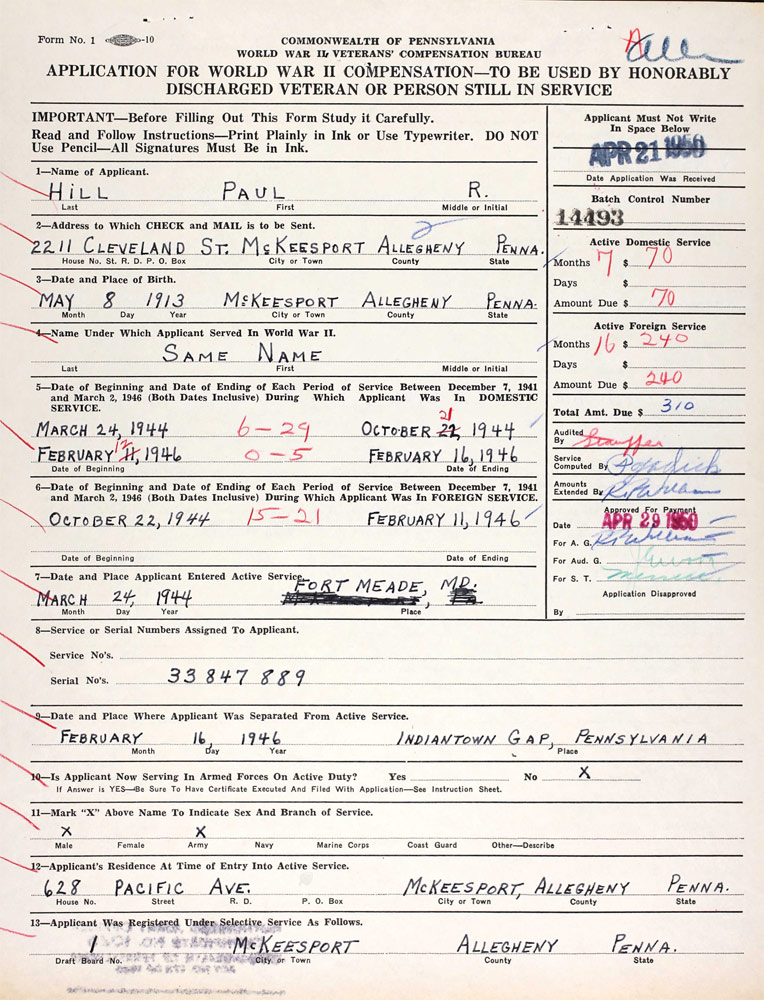 Form No. 1 -10
COMMONWEALTH OF PENNSYLVANIA
WORLD WAR II VETERANS' COMPENSATION BUREAU
APPLICATION FOR WORLD WAR II COMPENSATION—TO BE USED BY HONORABLY
DISCHARGED VETERAN OR PERSON STILL IN SERVICE
IMPORTANT—Before Filling Out This Form Study it Carefully.
Read and Follow Instructions—Print Plainly in Ink or Use Typewriter. DO NOT
Use Pencil—All Signatures Must Be in Ink.
1—Name of Applicant.
HILL PAUL R.
Last First Middle or Initial
2—Address to Which CHECK and MAIL is to be Sent.
2211 CLEVELAND ST. MCKEESPORT ALLEGHENY PENNA.
House No. St. R. D. P. O. Box City or Town County State
3—Date and Place of Birth.
MAY 8 1913 MCKEESPORT ALLEGHENY PENNA.
Month Day Year City or Town County State
4—Name Under Which Applicant Served In World War II.
SAME NAME
Last First Middle or Initial
5—Date of Beginning and Date of Ending of Each Period of Service Between December 7, 1941
and March 2, 1946 (Both Dates Inclusive) During Which Applicant Was In DOMESTIC
SERVICE.
MARCH 24, 1944 6-29 OCTOBER 21, 1944
FEBRUARY 12, 1946 0-5 FEBRUARY 16, 1946
Date of Beginning Date of Ending
6—Date of Beginning and Date of Ending of Each Period of Service Between December 7, 1941
and March 2, 1946 (Both Dates Inclusive) During Which Applicant Was In FOREIGN SERVICE.
OCTOBER 22, 1944 15-21 FEBRUARY 11, 1946
Date of Beginning Date of Ending
7—Date and Place Applicant Entered Active Service.
MARCH 24, 1944 FORT MEADE, MD.
Month Day Year Place
Applicant Must Not Write
In Space Below
APR 21 1950
Date Application Was Received
Batch Control Number
14493
Active Domestic Service
Months 7 $ 70
Days $
Amount Due $ 70
Active Foreign Service
Months 16 $ 240
Days $
Amount Due $ 240
Total Amt. Due $ 310
Audited
By Stauffer
Service
Computed By
Amounts
Extended By
Approved For Payment
Date APR 29 1950
For A. G.
For Aud. G.
For S. T.
Application Disapproved
By
8—Service or Serial Numbers Assigned To Applicant.
Service No's.
Serial No's. 33 847 889
9—Date and Place Where Applicant Was Separated From Active Service.
FEBRUARY 16, 1946 INDIANTOWN GAP, PENNSYLVANIA
Month Day Year Place
10—Is Applicant Now Serving In Armed Forces On Active Duty? Yes No X
If Answer is YES—Be Sure To Have Certificate Executed And Filed With Application—See Instruction Sheet.
11—Mark "X" Above Name To Indicate Sex And Branch of Service.
X X
Male Female Army Navy Marine Corps Coast Guard Other—Describe
12—Applicant's Residence At Time of Entry Into Active Service.
628 PACIFIC AVE. MCKEESPORT, ALLEGHENY PENNA.
House No. Street R. D. P. O. Box City or Town County State
13—Applicant Was Registered Under Selective Service As Follows.
1 MCKEESPORT ALLEGHENY PENNA.
Draft Board No. City or Town County State